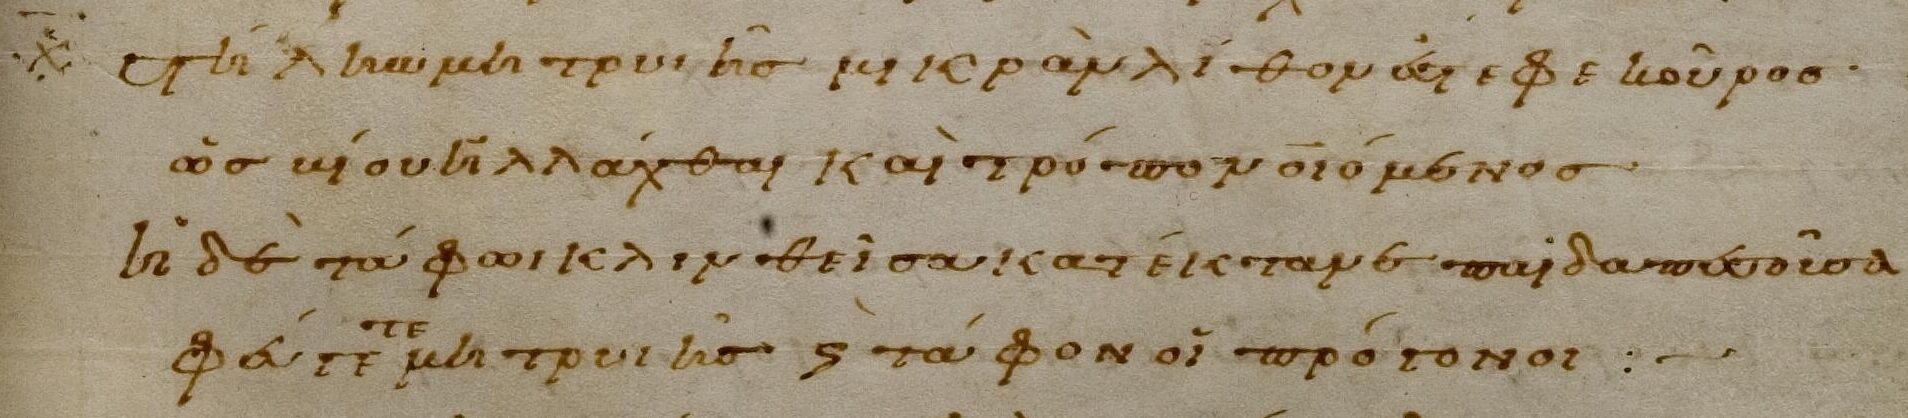 στήλην μητρυιῆς μικρὰν λίθον ἔστεφε κοῦρος·
ὡς βίον ἠλλάχθαι καὶ τρόπον οἰόμενος
ἡ δὲ τάφωι κλινθεῖσα κατέκτανε παῖδα πεσοῦσα
φεύγετε μητρυιῆς ϗ τάφον οἱ πρόγονοι :~